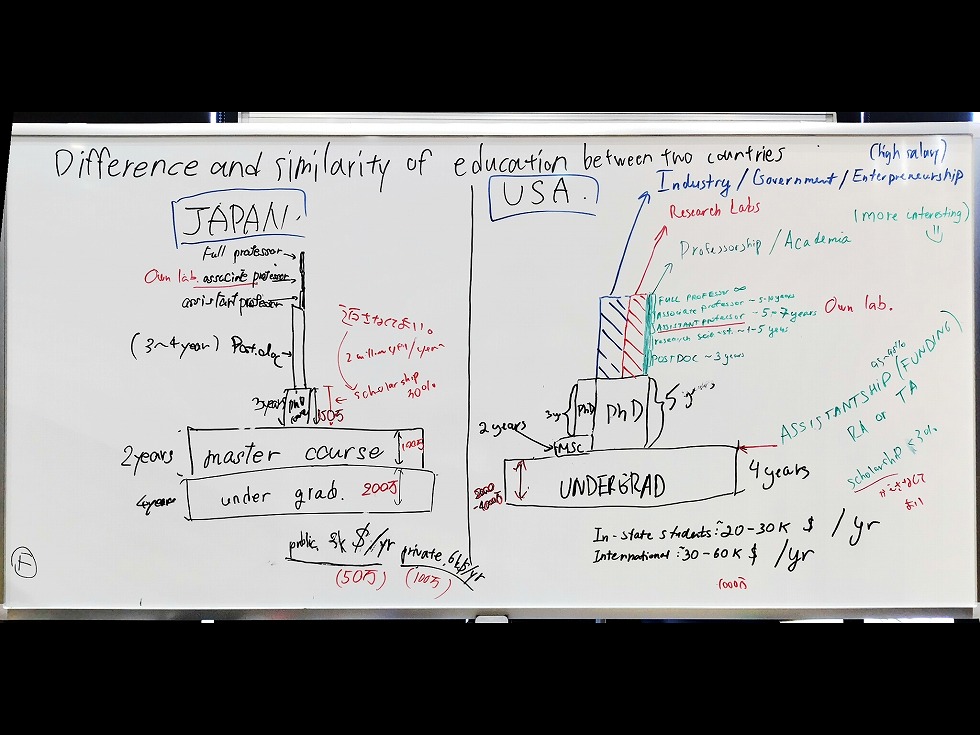 Difference and similarity of education between two countries
JAPAN.
Full professor
Own lab. associate professor
assistant professor
(3~4 year) Postdoc
返さなくてよい。
2 million yen/year
scholarship
30%
3years
PhD
150万
2years
master course
100万
4years
under grab.
200万
public
$/yr
(50万)
private. 6k$/yr
(100万)
F
USA.
(high salary)
Industry / Government / Enterpreneurship
Research Labs
(more interesting)
Professorship / Academia
FULL PROFESSOR ∞
Associate professor ~ 5-10years
ASSISTANT PROFESSOR ~ 5-7years
Own lab.
~1-5 years
POSTDOC ~3years
3yr
PhD
PhD
2years
MSC
ASSISTANTSHIP (FUNDING)
RA or TA
UNDERGRAD
4years
scholarship ≤3%
In-state students: ~20-30K $ /yr
International: ~30-60K $ /yr
1000万